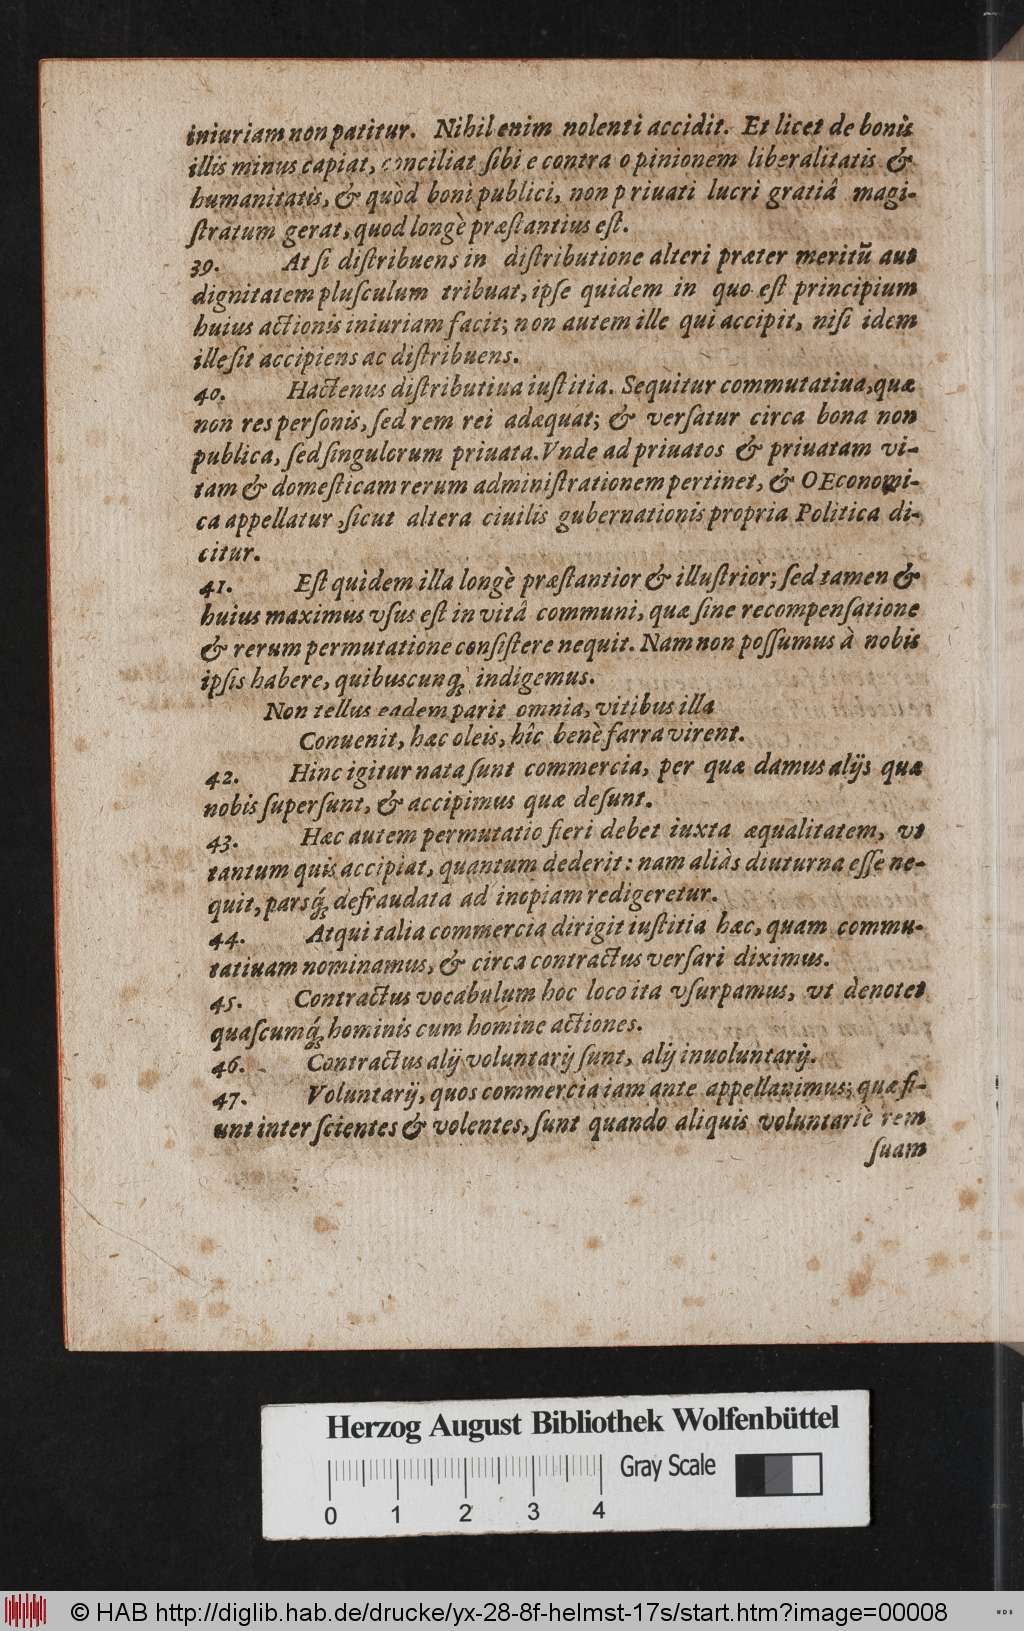 iniuriam non patitur. Nihil enim nolenti accidit. Et licet de bonis
illis minus capiat, conciliat ſibi e contra opinionem liberalitatis &
humanitatis, & quòd boni publici, non priuati lucri gratiâ magi-
ſtratum gerat, quod longè præſtantius eſt.
39. At ſi diſtribuens in diſtributione alteri præter meritũ aut
dignitatem pluſculum tribuat, ipſe quidem in quo eſt principium
huius actionis iniuriam facit; non autem ille qui accipit, niſi idem
ille ſit accipiens ac diſtribuens.
40. Hactenus diſtributiua iuſtitia. Sequitur commutatiua, quæ
non res perſonis, ſed rem rei adæquat; & verſatur circa bona non
publica, ſed ſingulorum priuata. Vnde ad priuatos & priuatam vi-
tam & domeſticam rerum adminiſtrationem pertinet, & OEconomi-
ca appellatur, ſicut altera ciuilis gubernationis propria Politica di-
citur.
41. Eſt quidem illa longè præſtantior & illuſtrior; ſed tamen &
huius maximus vſus eſt in vitâ communi, quæ ſine recompenſatione
& rerum permutatione conſiſtere nequit. Nam non poſſumus à nobis
ipſis habere, quibuscunq́; indigemus.
Non tellus eadem parit omnia, vitibus illa
Conuenit, hæc oleis, hîc benè farra virent.
42. Hinc igitur nata ſunt commercia, per quæ damus alijs quæ
nobis ſuperſunt, & accipimus quæ deſunt.
43. Hæc autem permutatio fieri debet iuxta æqualitatem, vt
tantum quis accipiat, quantum dederit: nam aliàs diuturna eſſe ne-
quit, parsq́; defraudata ad inopiam redigeretur.
44. Atqui talia commercia dirigit iuſtitia hæc, quam commu-
tatiuam nominamus, & circa contractus verſari diximus.
45. Contractus vocabulum hoc loco ita vſurpamus, vt denotet
quaſcumq́; hominis cum homine actiones.
46. Contractus alij voluntarij ſunt, alij inuoluntarij.
47. Voluntarij, quos commercia iam ante appellauimus; quæ fi-
unt inter ſcientes & volentes, ſunt quando aliquis voluntariè rem
ſuam
Herzog August Bibliothek Wolfenbüttel
Gray Scale
0 1 2 3 4
© HAB http://diglib.hab.de/drucke/yx-28-8f-helmst-17s/start.htm?image=00008